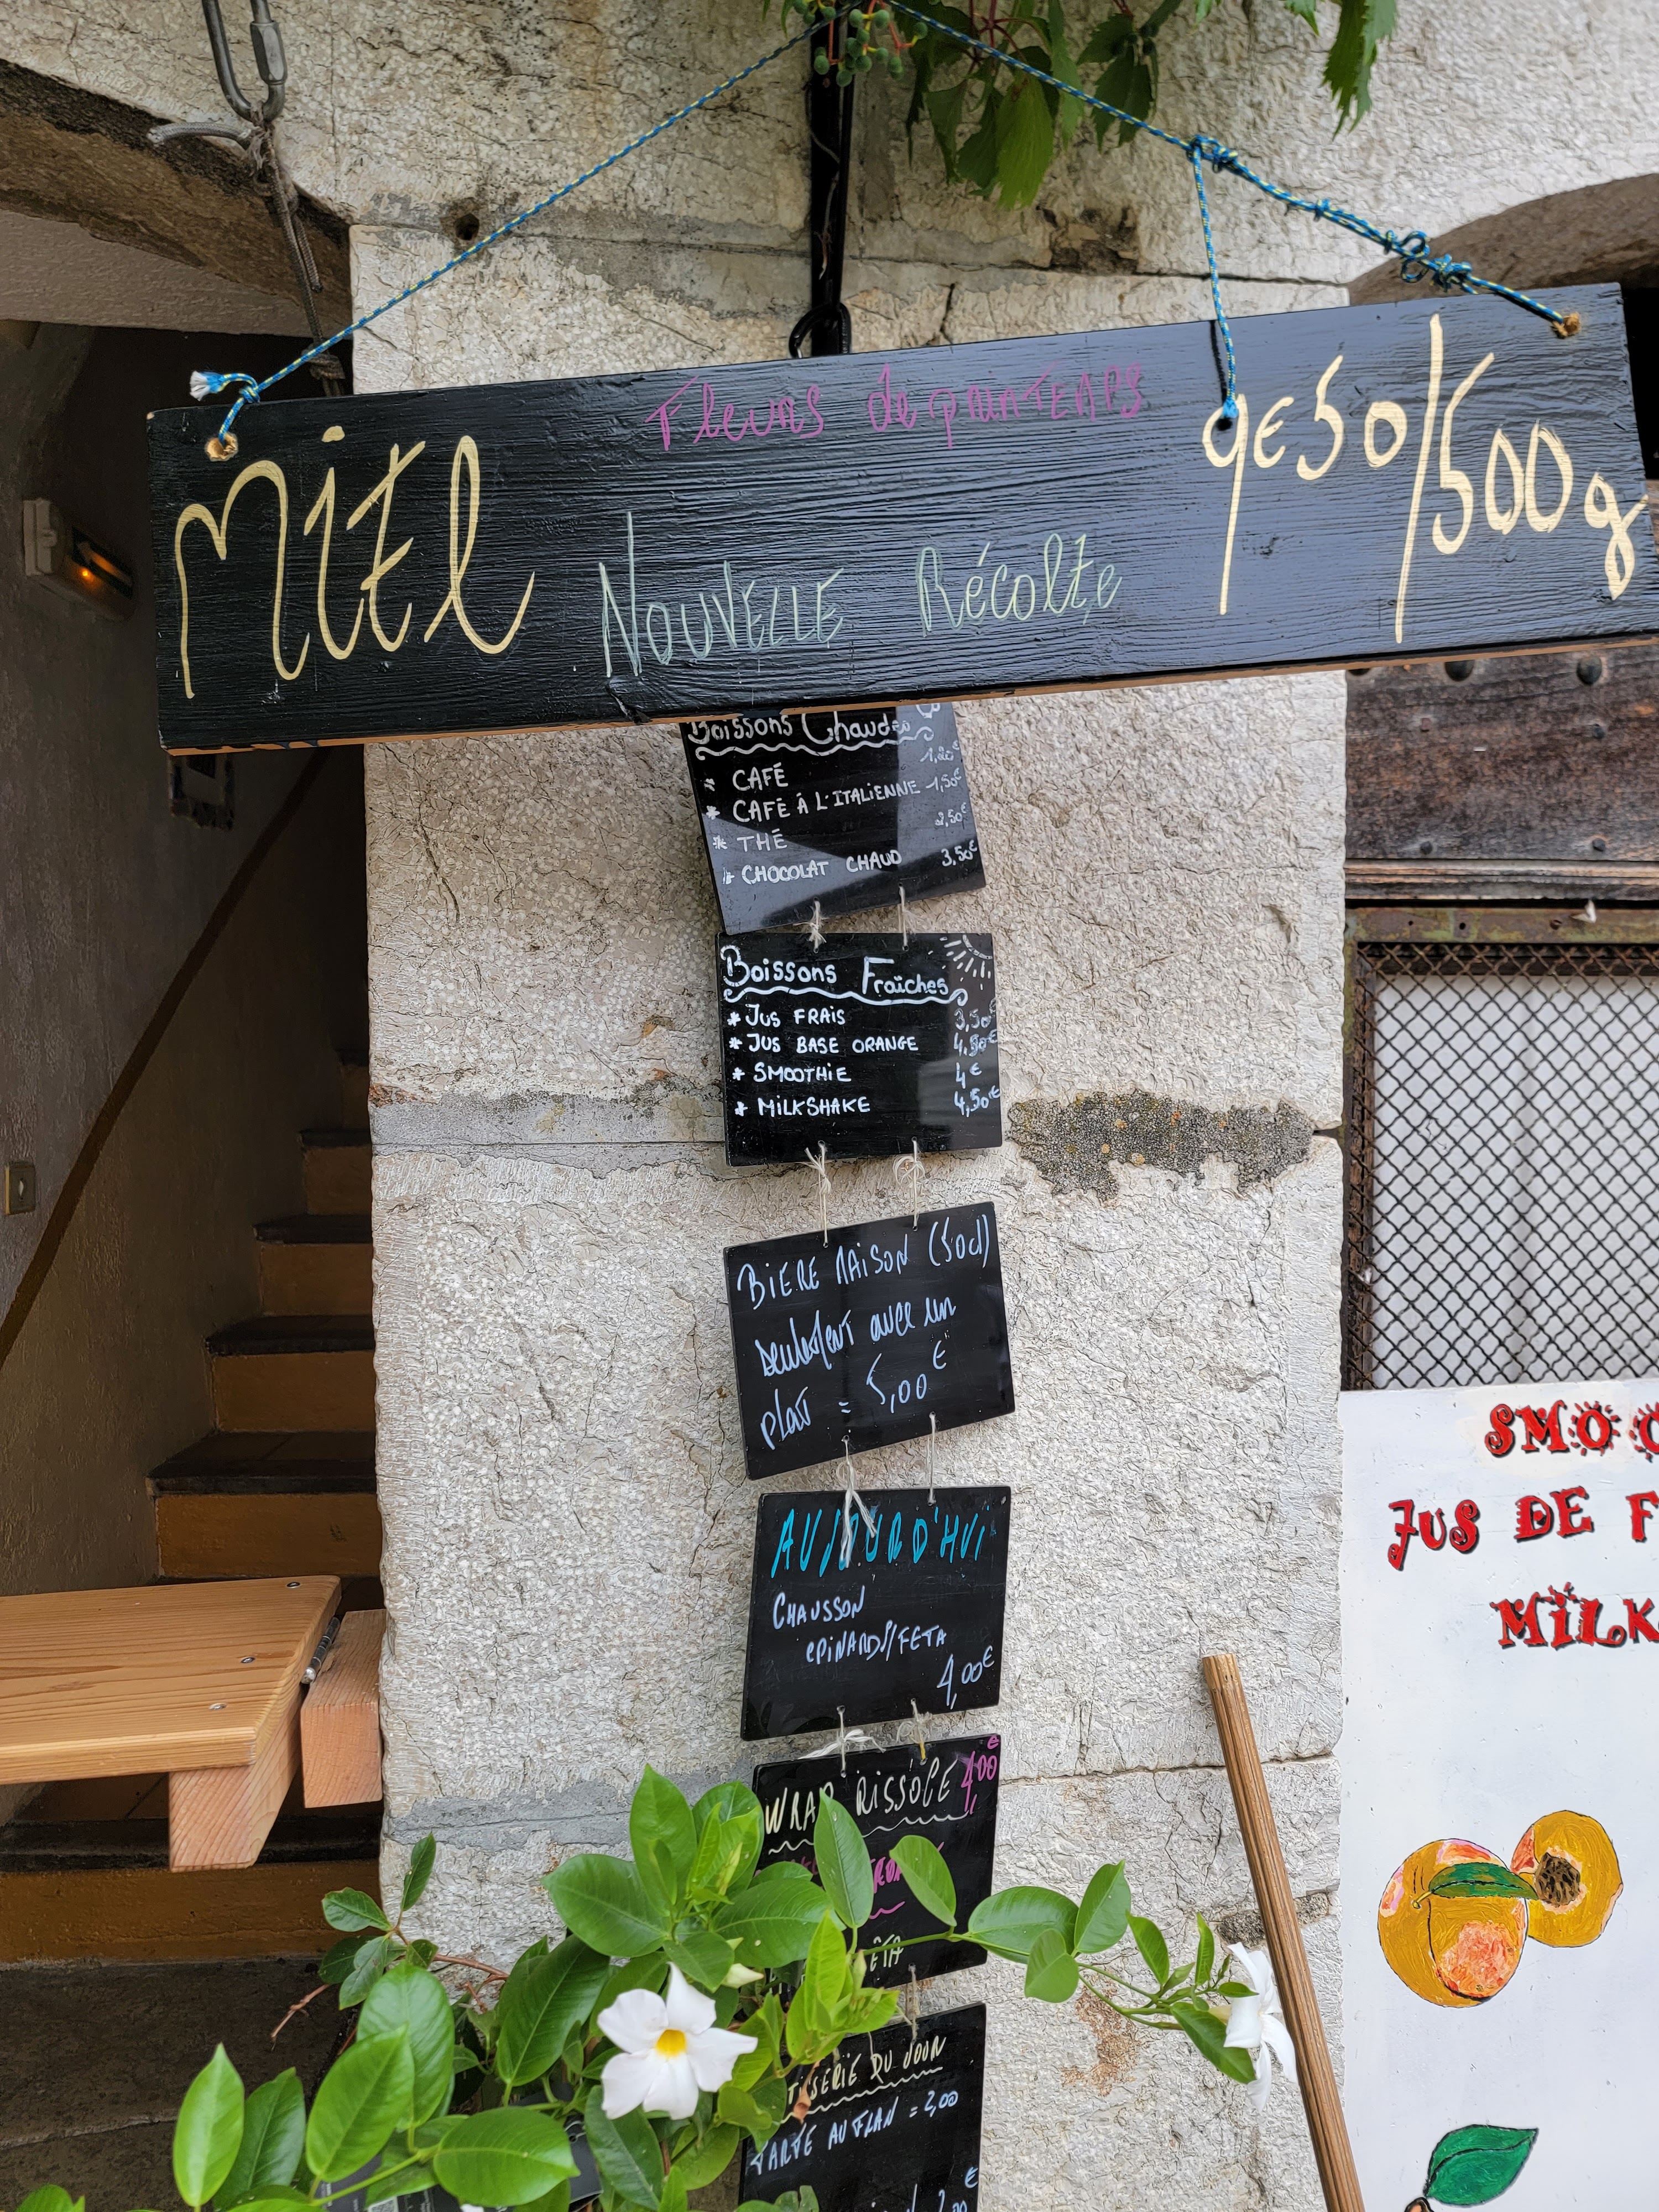 Fleurs de printemps
Miel
Nouvelle Récolte
9€50/500g
Boissons Chaudes
* CAFÉ 1,20€
* CAFÉ À L'ITALIENNE 1,50€
* THÉ 2,50€
* CHOCOLAT CHAUD 3,50€
Boissons Fraîches
* JUS FRAIS 3,50€
* JUS BASE ORANGE
* SMOOTHIE 4€
* MILKSHAKE 4,50€
BIERE MAISON (50cl)
seulement avec un
plat = 5,00€
AUJOURD'HUI
CHAUSSON
EPINARDS/FETA
4,00€
WRAP RISSOLE 4,00€
DU JOUR
TARTE AU FLAN = 2,00
€
SMO
JUS DE F
MILK